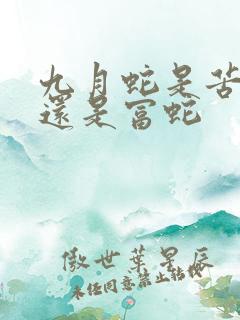 九月蛇是苦
還是富蛇
傲世葉星辰
未经同意禁止转载